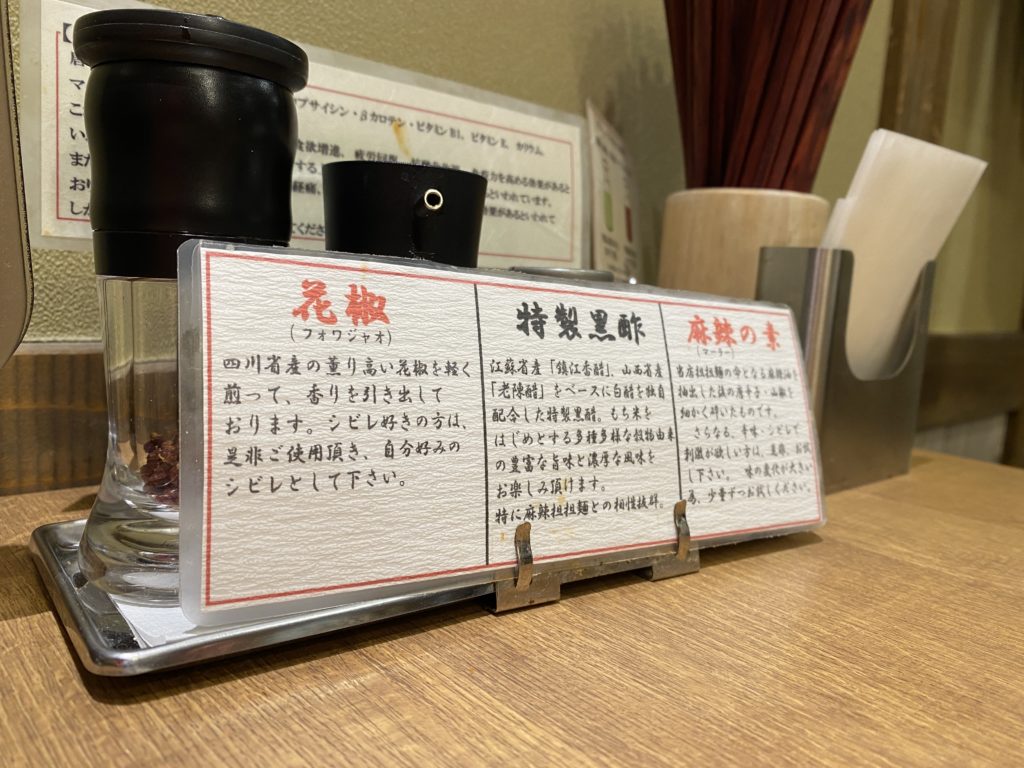 花椒
(フォワジャオ)
四川省産の薫り高い花椒を軽く
煎って、香りを引き出して
おります。シビレ好きの方は、
是非ご使用頂き、自分好みの
シビレとして下さい。
特製黒酢
江蘇省産「鎮江香醋」、山西省産
「老陳醋」をベースに白醋を独自
配合した特製黒醋。もち米を
はじめとする多種多様な穀物由来
の豊富な旨味と濃厚な風味を
お楽しみ頂けます。
特に麻辣担担麺との相性抜群。
麻辣の素
(マーラー)
当店担担麺の命となる麻辣油を
抽出した後の唐辛子・山椒を
細かく砕いたものです。
さらなる、辛味・シビレで
刺激が欲しい方は、是非、お試
し下さい。 味の変化が大きい
為、少量ずつお試しください。
プサイシン・βカロテン・ビタミンB1、ビタミンE、カリウム
食欲増進、疲労回復
力を高める効果があると
といわれています。
効果があるといわれて